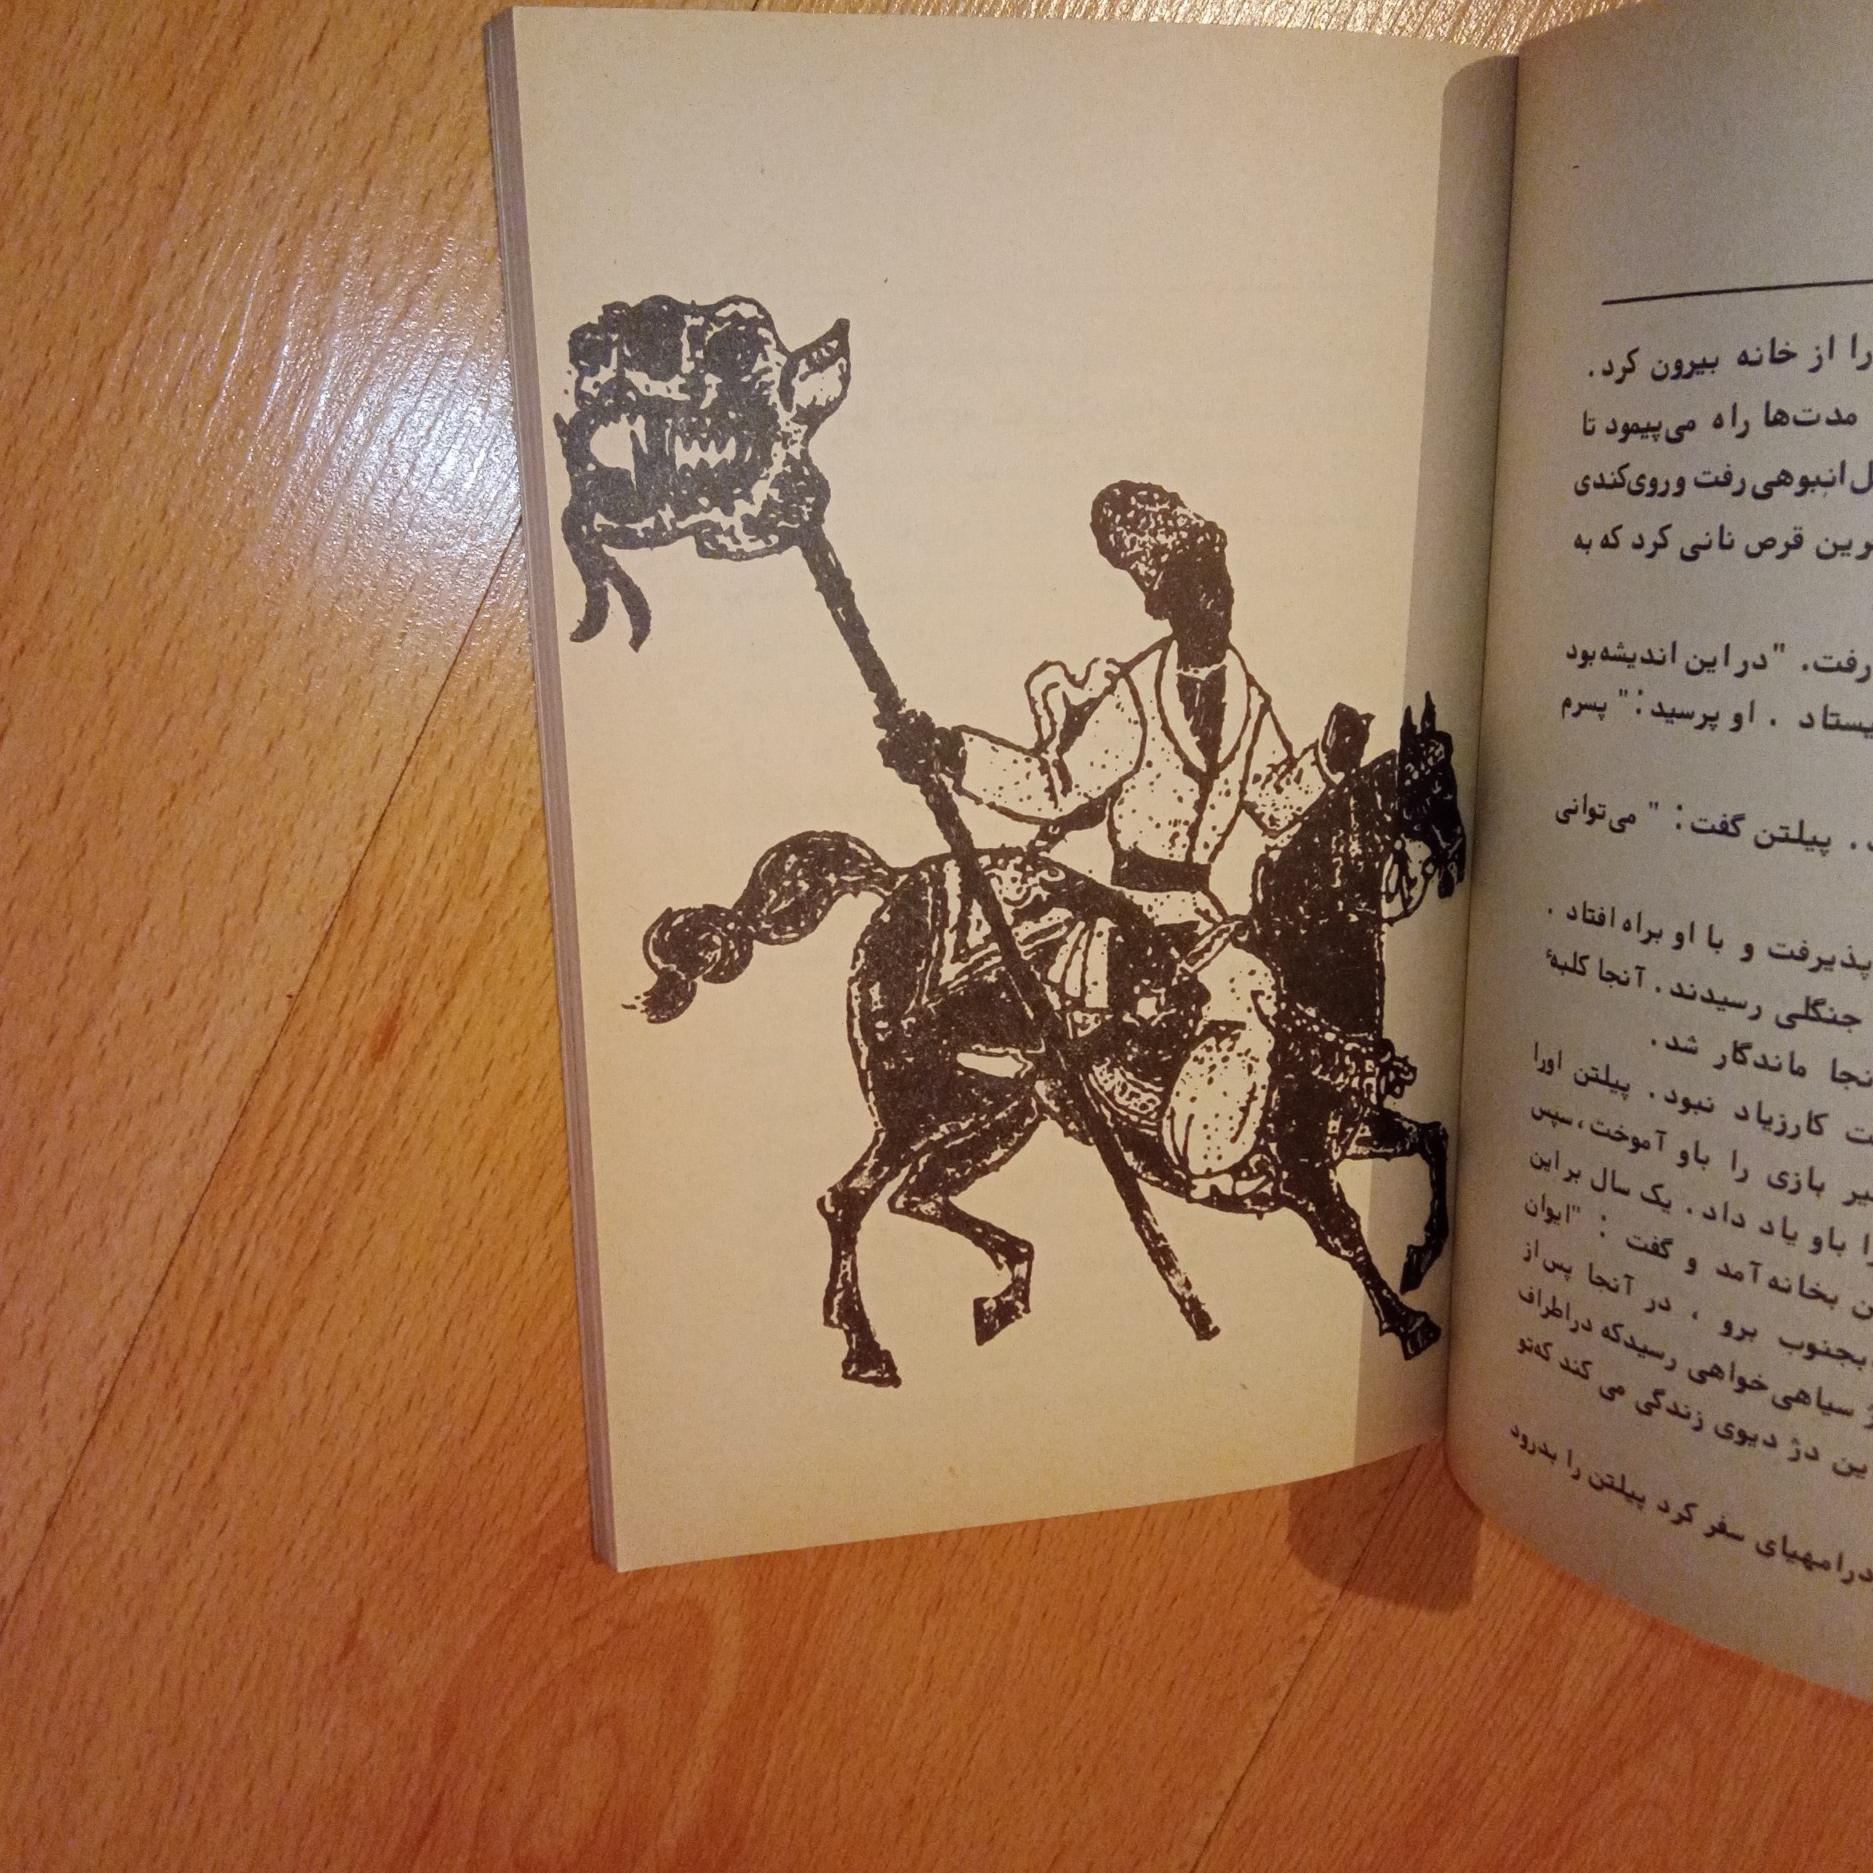 را از خانه بیرون کرد .
مدت‌ها راه می‌پیمود تا
انبوهی رفت و روی‌کندی
قرص نانی کرد که به
رفت. " در این اندیشه بود
او پرسید : " پسرم
. پیلتن گفت : " می‌توانی
پذیرفت و با او براه افتاد .
جنگلی رسیدند . آنجا کلبهٔ
ماندگار شد .
کارزیاد نبود . پیلتن اورا
بازی را باو آموخت ، سپس
باو یاد داد . یک سال بر این
بخانه آمد و گفت : " ایوان
بجنوب برو ، در آنجا پس از
سیاهی خواهی رسید که در اطراف
دژ دیوی زندگی می کند که تو
سفر کرد پیلتن را بدرود